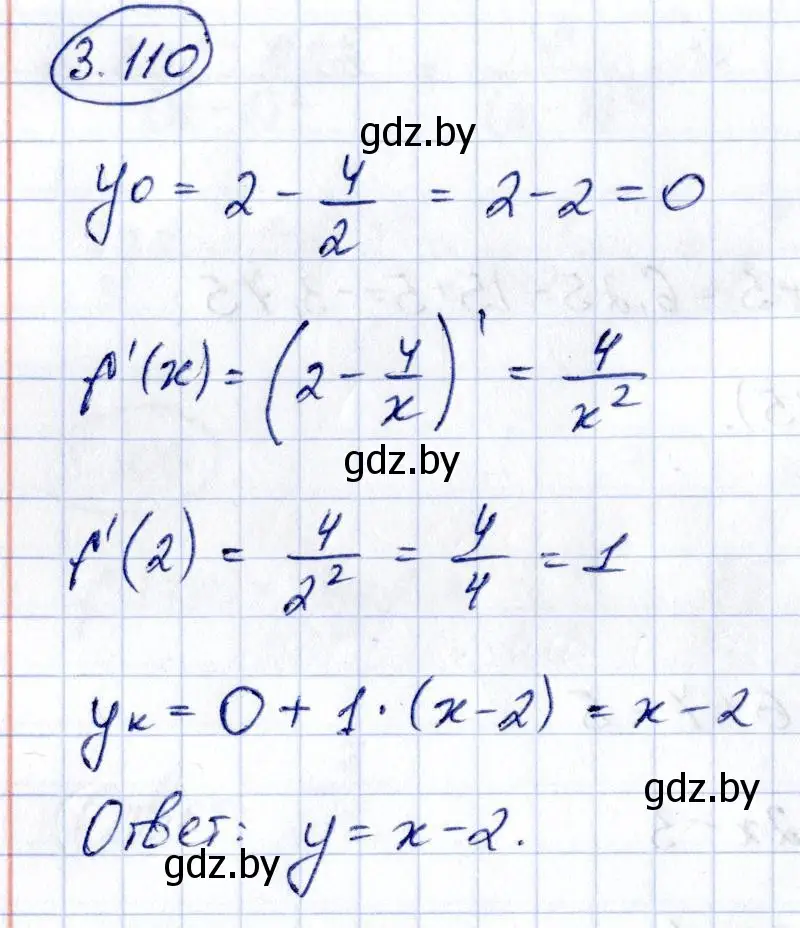 3.110
gdz.by
y₀ = 2 - 4/2 = 2 - 2 = 0
f'(x) = (2 - 4/x)' = 4/x²
gdz.by
f'(2) = 4/2² = 4/4 = 1
yₖ = 0 + 1 · (x - 2) = x - 2
gdz.by
Ответ: y = x - 2.
gdz.by